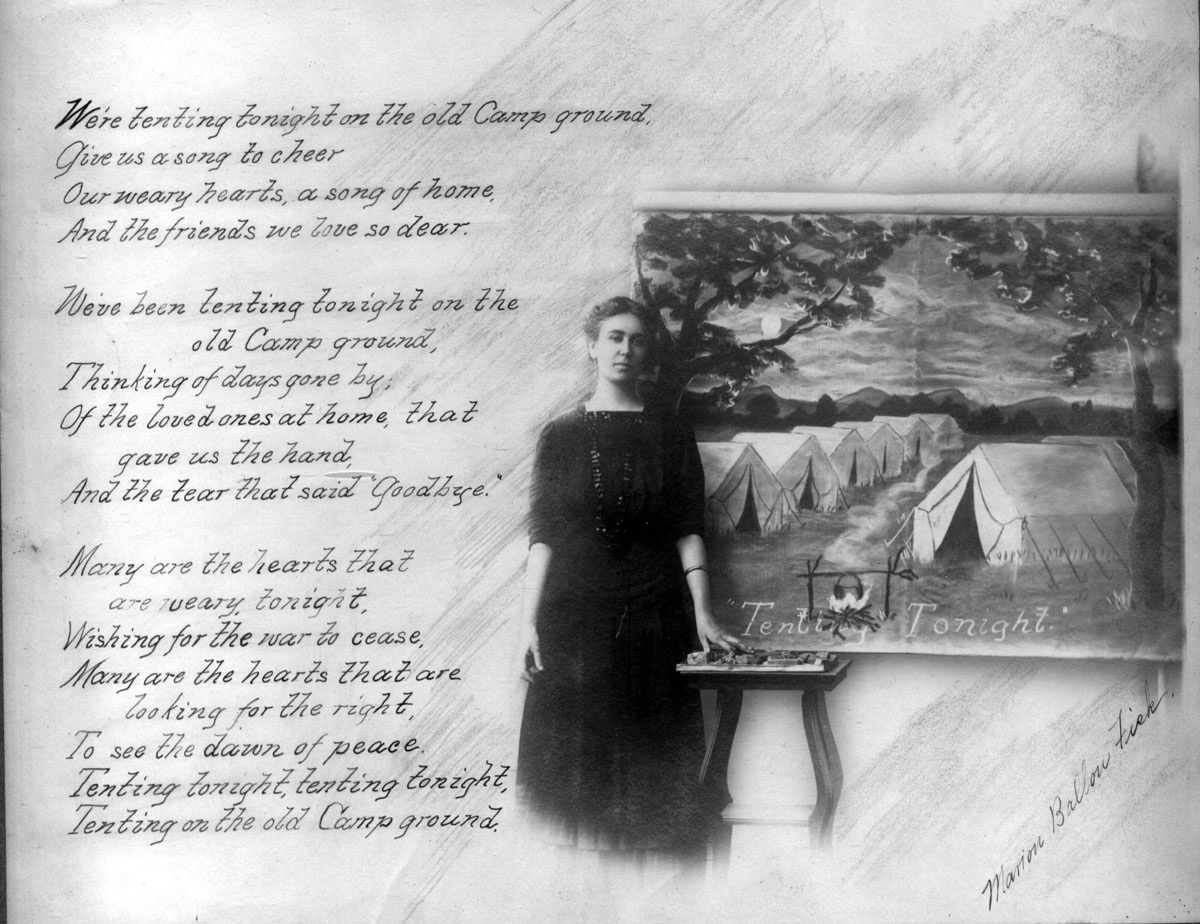 We're tenting tonight on the old Camp ground,
Give us a song to cheer
Our weary hearts, a song of home,
And the friends we love so dear.
We've been tenting tonight on the
old Camp ground,
Thinking of days gone by;
Of the loved ones at home, that
gave us the hand,
And the tear that said "Goodbye."
Many are the hearts that
are weary, tonight,
Wishing for the war to cease,
Many are the hearts that are
looking for the right,
To see the dawn of peace.
Tenting tonight, tenting tonight,
Tenting on the old Camp ground.
"Tenting Tonight."
Marion Ballou Fisk.